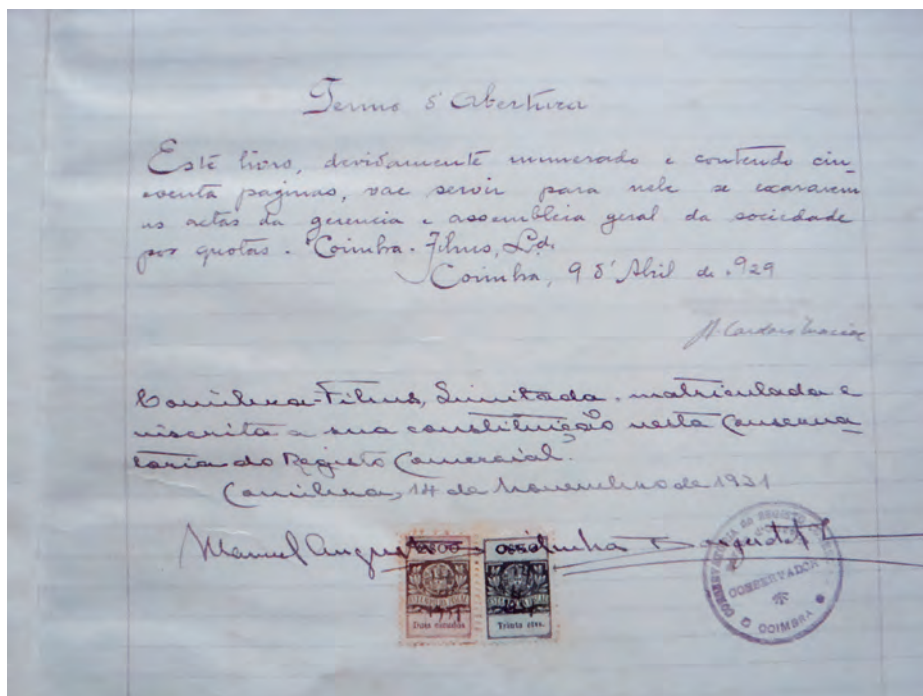 Termo d'Abertura
Este livro, devidamente numerado e contendo cin-
coenta paginas, vae servir para nele se exararem
as actas da gerencia e assembleia geral da sociedade
por quotas. "Coimbra-Films, Ld.
Coimbra, 9 d'Abril de 929
Coimbra-Films, Limitada, matriculada e
inscrita a sua constituição nesta Conserva-
toria do Registo Comercial.
Coimbra, 14 de Novembro de 1931
Manuel Augusto
CONSERVATORIA DO REGISTO
CONSERVADOR
COIMBRA